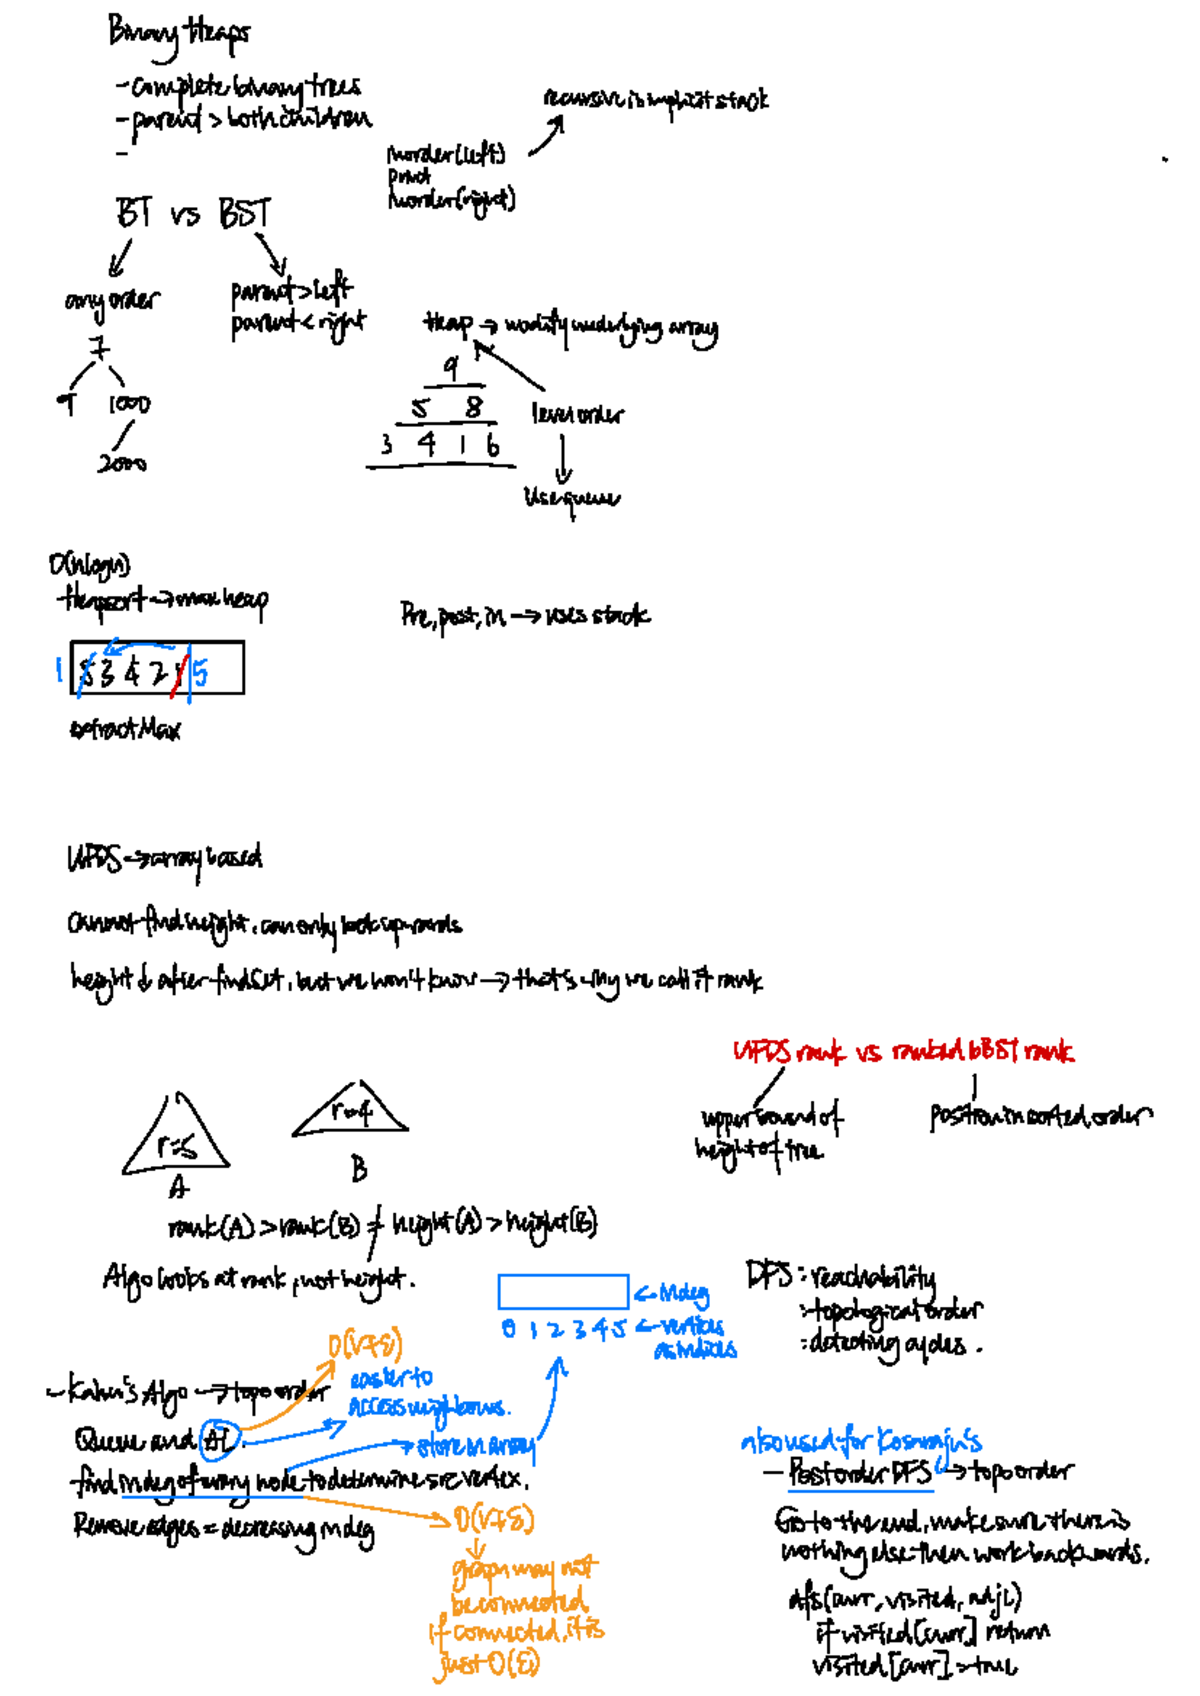 Binary Heaps
- complete binary trees
- parent > both children
-
recursive is implicit stack
inorder(left)
print
inorder(right)
BT vs BST
any order
parent > left
parent < right
7
9 1000
2000
Heap → modify underlying array
9
5 8
3 4 1 6
level order
Use queue
O(nlogn)
Heapsort → max heap
Pre, post, in → uses stack
1 5 3 4 2 1 5
extractMax
UFDS → array based
cannot find height, can only look upwards
height ↓ after findSet, but we won't know → that's why we call it rank
UFDS rank vs ranked bBST rank
upper bound of
height of tree
position in sorted order
r=5
A
r=4
B
rank(A) > rank(B) ≠ height(A) > height(B)
Algo looks at rank, not height.
← indeg
0 1 2 3 4 5 ← vertices
as indices
DFS : reachability
: topological order
: detecting cycles.
O(V+E)
- Kahn's Algo → topo order
easier to
access neighbours.
Queue and AL.
→ store in array
find indeg of every node to determine src vertex.
Remove edges = decreasing indeg
O(V+E)
graph may not
be connected
if connected, it is
just O(E)
also used for Kosaraju's
- Postorder DFS → topo order
Go to the end, make sure there is
nothing else then work backwards.
dfs(curr, visited, adjL)
if visited[curr] return
visited[curr] = true